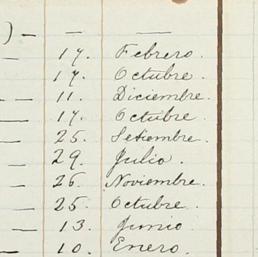 ) — — —
17. Febrero.
17. Octubre.
11. Diciembre.
17. Octubre.
25. Setiembre.
29. Julio.
26. Noviembre.
25. Octubre.
13. Junio
10. Enero.